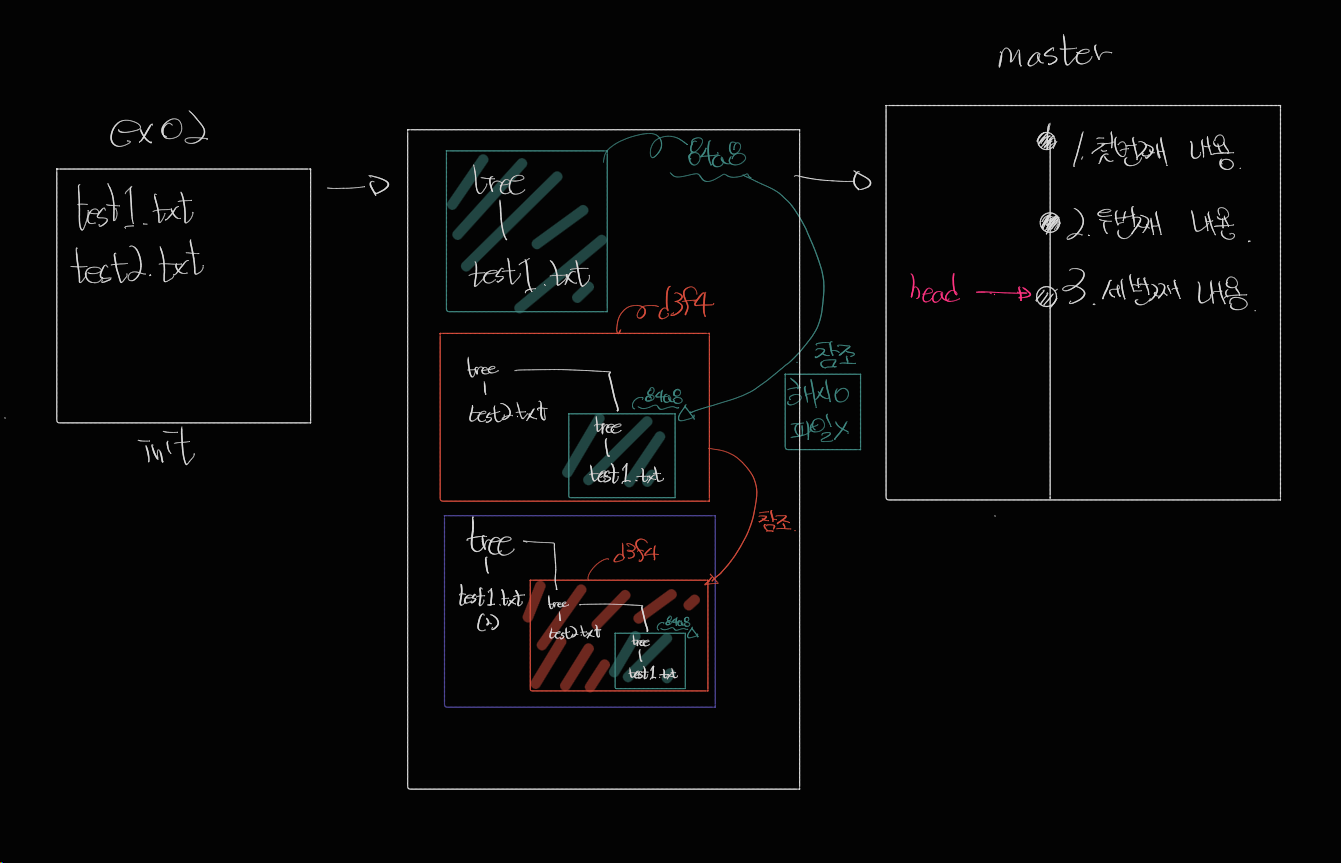 ex02
test1.txt
test2.txt
init
84a8
tree
test1.txt
d3f4
tree
test2.txt
84a8
tree
test1.txt
참조
해시O
파일X
참조
tree
test1.txt
(2)
d3f4
tree
test2.txt
84a8
tree
test1.txt
master
1. 첫번째 내용.
2. 두번째 내용.
head
3. 세번째 내용.